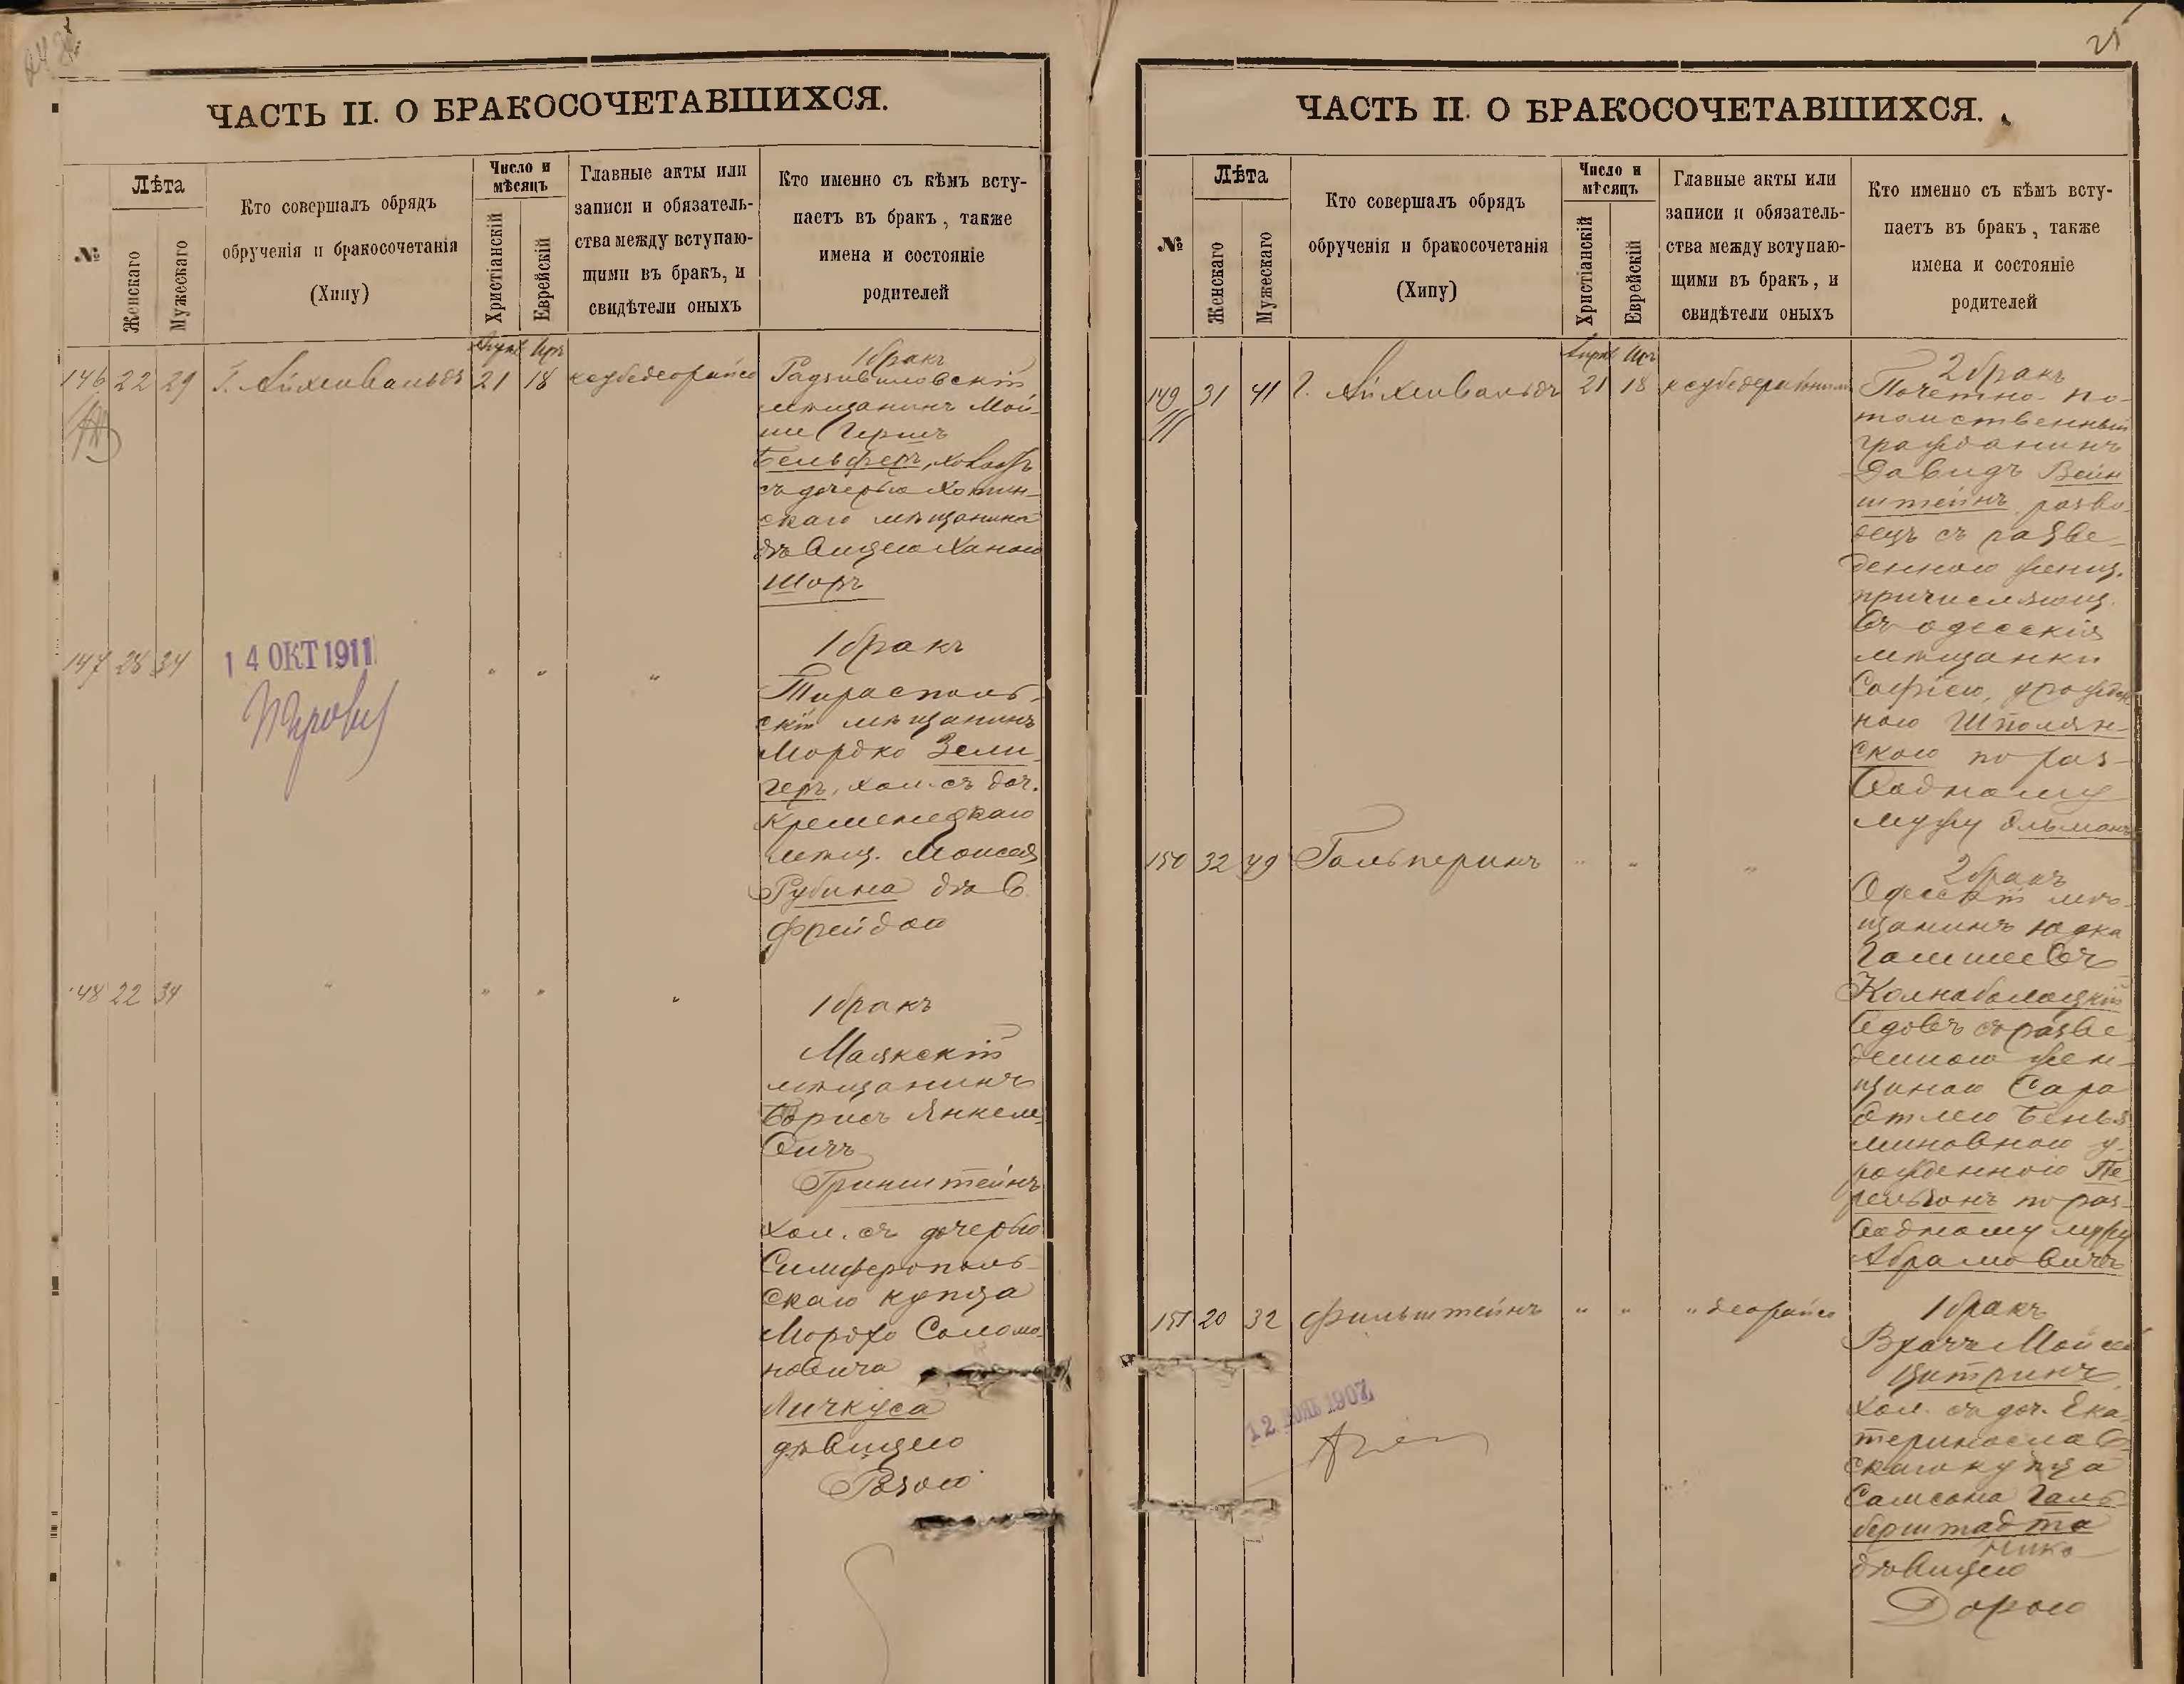 25
ЧАСТЬ II. О БРАКОСОЧЕТАВШИХСЯ.
№
Лѣта
Женскаго
Мужескаго
Кто совершалъ обрядъ
обрученія и бракосочетанія
(Хипу)
Число и
мѣсяцъ
Христіанскій
Еврейскій
Главные акты или
записи и обязатель-
ства между вступаю-
щими въ бракъ, и
свидѣтели оныхъ
Кто именно съ кѣмъ всту-
паетъ въ бракъ, также
имена и состояніе
родителей
146 22 29 Г. Айхенвальдъ 21 18
1 бракъ
Радзивиловскій
мѣщанинъ Мой-
ше Гершъ
Бельферъ,
съ дочерью Хотин-
скаго мѣщанина
дѣвицею Ханою
Шоръ
147 28 34 " " "
14 ОКТ 1911
1 бракъ
Тирасполь-
скій мѣщанинъ
Мордко Зели-
геръ, хол. съ доч.
Кременецкаго
мѣщ. Моисея
Рубина дѣв.
Фрейдой
148 22 34 " " " "
1 бракъ
Маякскій
мѣщанинъ
Борисъ Янкеле-
вичъ
Гринштейнъ
хол. съ дочерью
Симферополь-
скаго купца
Мордхо Соломо-
новича
Личкуса
дѣвицею
Розою
ЧАСТЬ II. О БРАКОСОЧЕТАВШИХСЯ.
№
Лѣта
Женскаго
Мужескаго
Кто совершалъ обрядъ
обрученія и бракосочетанія
(Хипу)
Число и
мѣсяцъ
Христіанскій
Еврейскій
Главные акты или
записи и обязатель-
ства между вступаю-
щими въ бракъ, и
свидѣтели оныхъ
Кто именно съ кѣмъ всту-
паетъ въ бракъ, также
имена и состояніе
родителей
149 31 41 Г. Айхенвальдъ 21 18
2 бракъ
Почетно-по-
томственный
гражданинъ
Давидъ Вейн-
штейнъ разво-
децъ съ разве-
денною женщ.
причисляющ.
въ одесскія
мѣщанки
Софіею, урожден-
ною Шполян-
скою по раз-
водному
мужу Ольманъ
150 32 49 Гальперинъ " " "
2 бракъ
Одесскій мѣ-
щанинъ Юдка
Колнаболоцкій
вдовъ съ разве-
денною жен-
щиною Сара
Этлею Бенья-
миновною у-
рожденною Пе-
рельзонъ по раз-
водному мужу
Абрамовичъ
151 20 32 Фильштейнъ " " " деорайсо
12 1907
1 бракъ
Врачъ Мойсей
Цитринъ,
хол. съ доч. Ека-
теринослав-
скаго купца
Самсона Галь-
берштадта
дѣвицею
Дорою